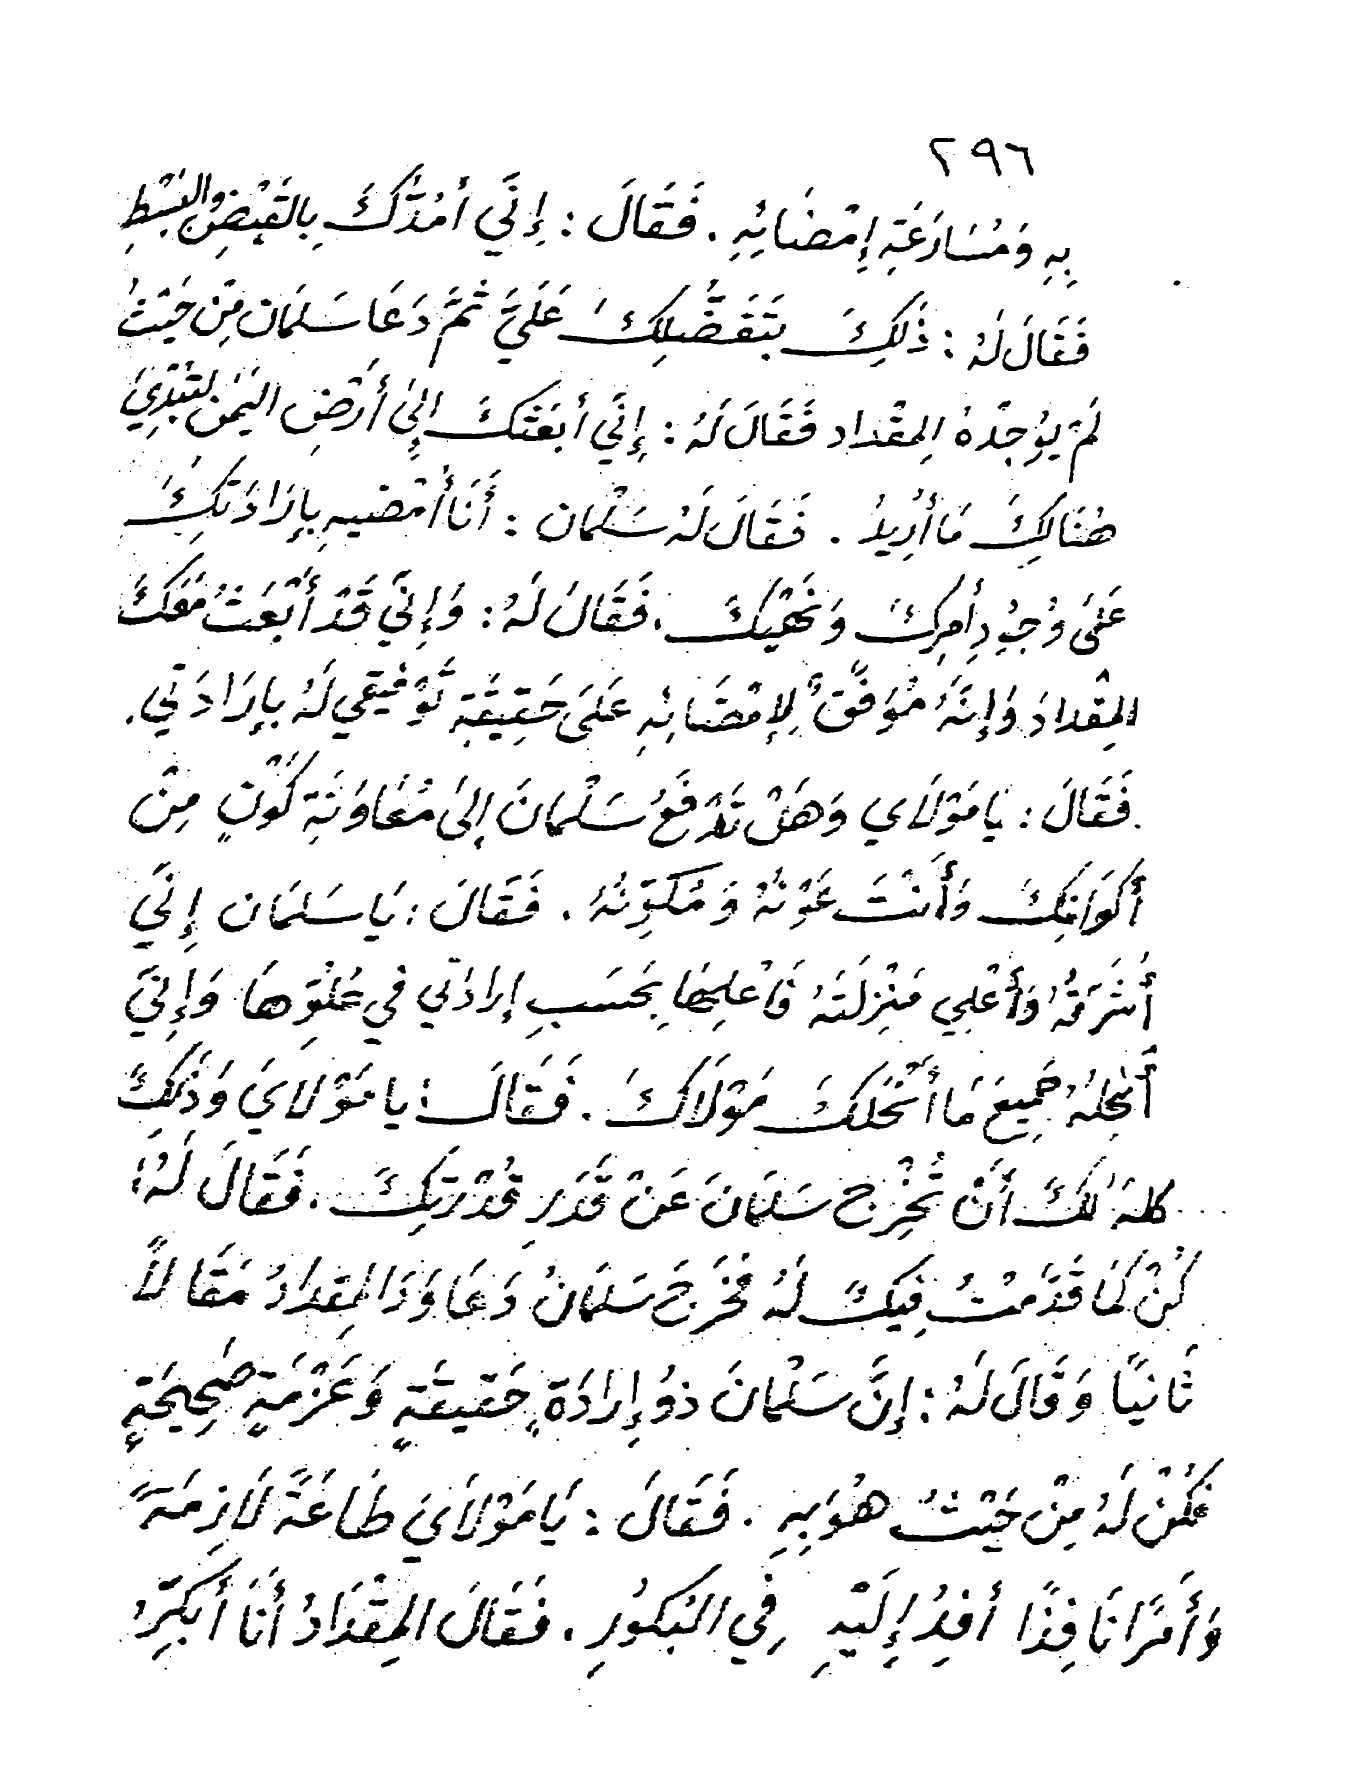 ٢٩٦
بِهِ وَمُسَارَعَتِهِ إِمْضَائِهِ . فَقَالَ : إِنِّي أَمُدُّكَ بِالقَبْضِ وَالبَسْطِ
فَقَالَ لَهُ : ذَلِكَ بِتَفَضُّلِكَ عَلَيَّ ثُمَّ دَعَا سَلمَان مِن حَيْثُ
لَمْ يُوجِدْهُ المِقْدَاد فَقَالَ لَهُ : إِنِّي أَبْعَثُكَ إِلَىٰ أَرْضِ اليَمَن لِتُبْدِيَ
هُنَالِكَ مَا أُرِيدُ . فَقَالَ لَهُ سَلْمَان : أَنَا أُمْضِيهِ بِإِرَادَتِكَ
عَلَىٰ وُجُودِ أَمرِكَ وَنَهْيِكَ . فَقَالَ لَهُ : وَإِنِّي قَدْ أَبْعَثُ مَعَكَ
المِقْدَادَ وَإِنَّهُ مُوَفَّقٌ لِإِمْضَائِهِ عَلَىٰ حَقِيقَةِ تَوْفِيقِي لَهُ بِإِرَادَتِي .
فَقَالَ : يَا مَوْلَاي وَهَلْ تَدْفَعُ سَلْمَانَ إِلَىٰ مُعَاوَنَةِ كَوْنٍ مِنْ
أَكْوَانِكَ وَأَنْتَ عَوْنُهُ وَمُكَوِّنُهُ . فَقَالَ : يَا سَلمَان إِنِّي
أُشَرِّفُهُ وَأُعْلِي مَنْزِلَتَهُ فَاعْلِمهَا بِحَسَبِ إِرَادَتِي فِي عُلُوِّهَا وَإِنِّي
أُنْحِلهُ جَمِيعَ مَا أَنْحَلَكَ مَوْلَاكَ . فَقَالَ : يَا مَوْلَايَ وَذَلِكَ
كلهُ لَكَ أَنْ تُخْرِجَ سَلمَانَ عَنْ قَدَرِ قُدْرَتِكَ . فَقَالَ لَهُ :
كُنْ كَمَا قَدَّمْتُ فِيكَ لَهُ فَخَرَجَ سَلمَانُ وَعَاوَدَ المِقدَادُ مَقَالاً
ثَانِيًا وَقَالَ لَهُ : إِنَّ سَلْمَانَ ذُو إِرَادَةٍ حَقِيقَةٍ وَعَزْمَةٍ صَحِيحَةٍ
فَكُنْ لَهُ مِنْ حَيْثُ هُوَ بِهِ . فَقَالَ : يَا مَوْلَايَ طَاعَةً لَازِمَةً
وَأَمْرًا نَافِذًا أَفِدُ إِلَيْهِ فِي البُكُورِ . فَقَالَ المِقْدَادُ أَنَا أُبَكِّرُ